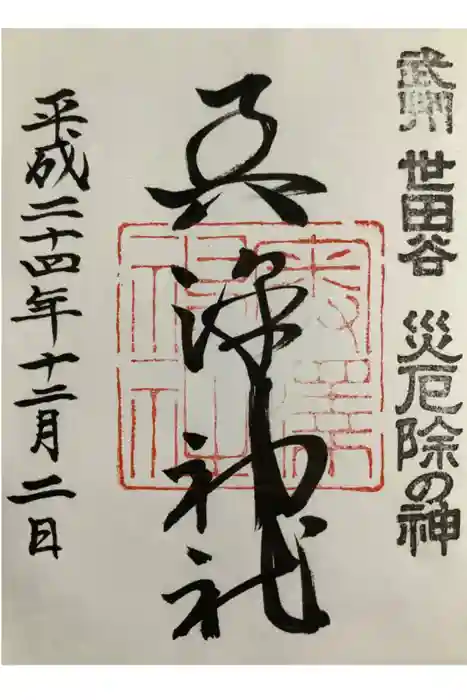 武州 世田谷 災厄除の神
奥澤神社
奥澤
神社
平成二十四年十二月二日